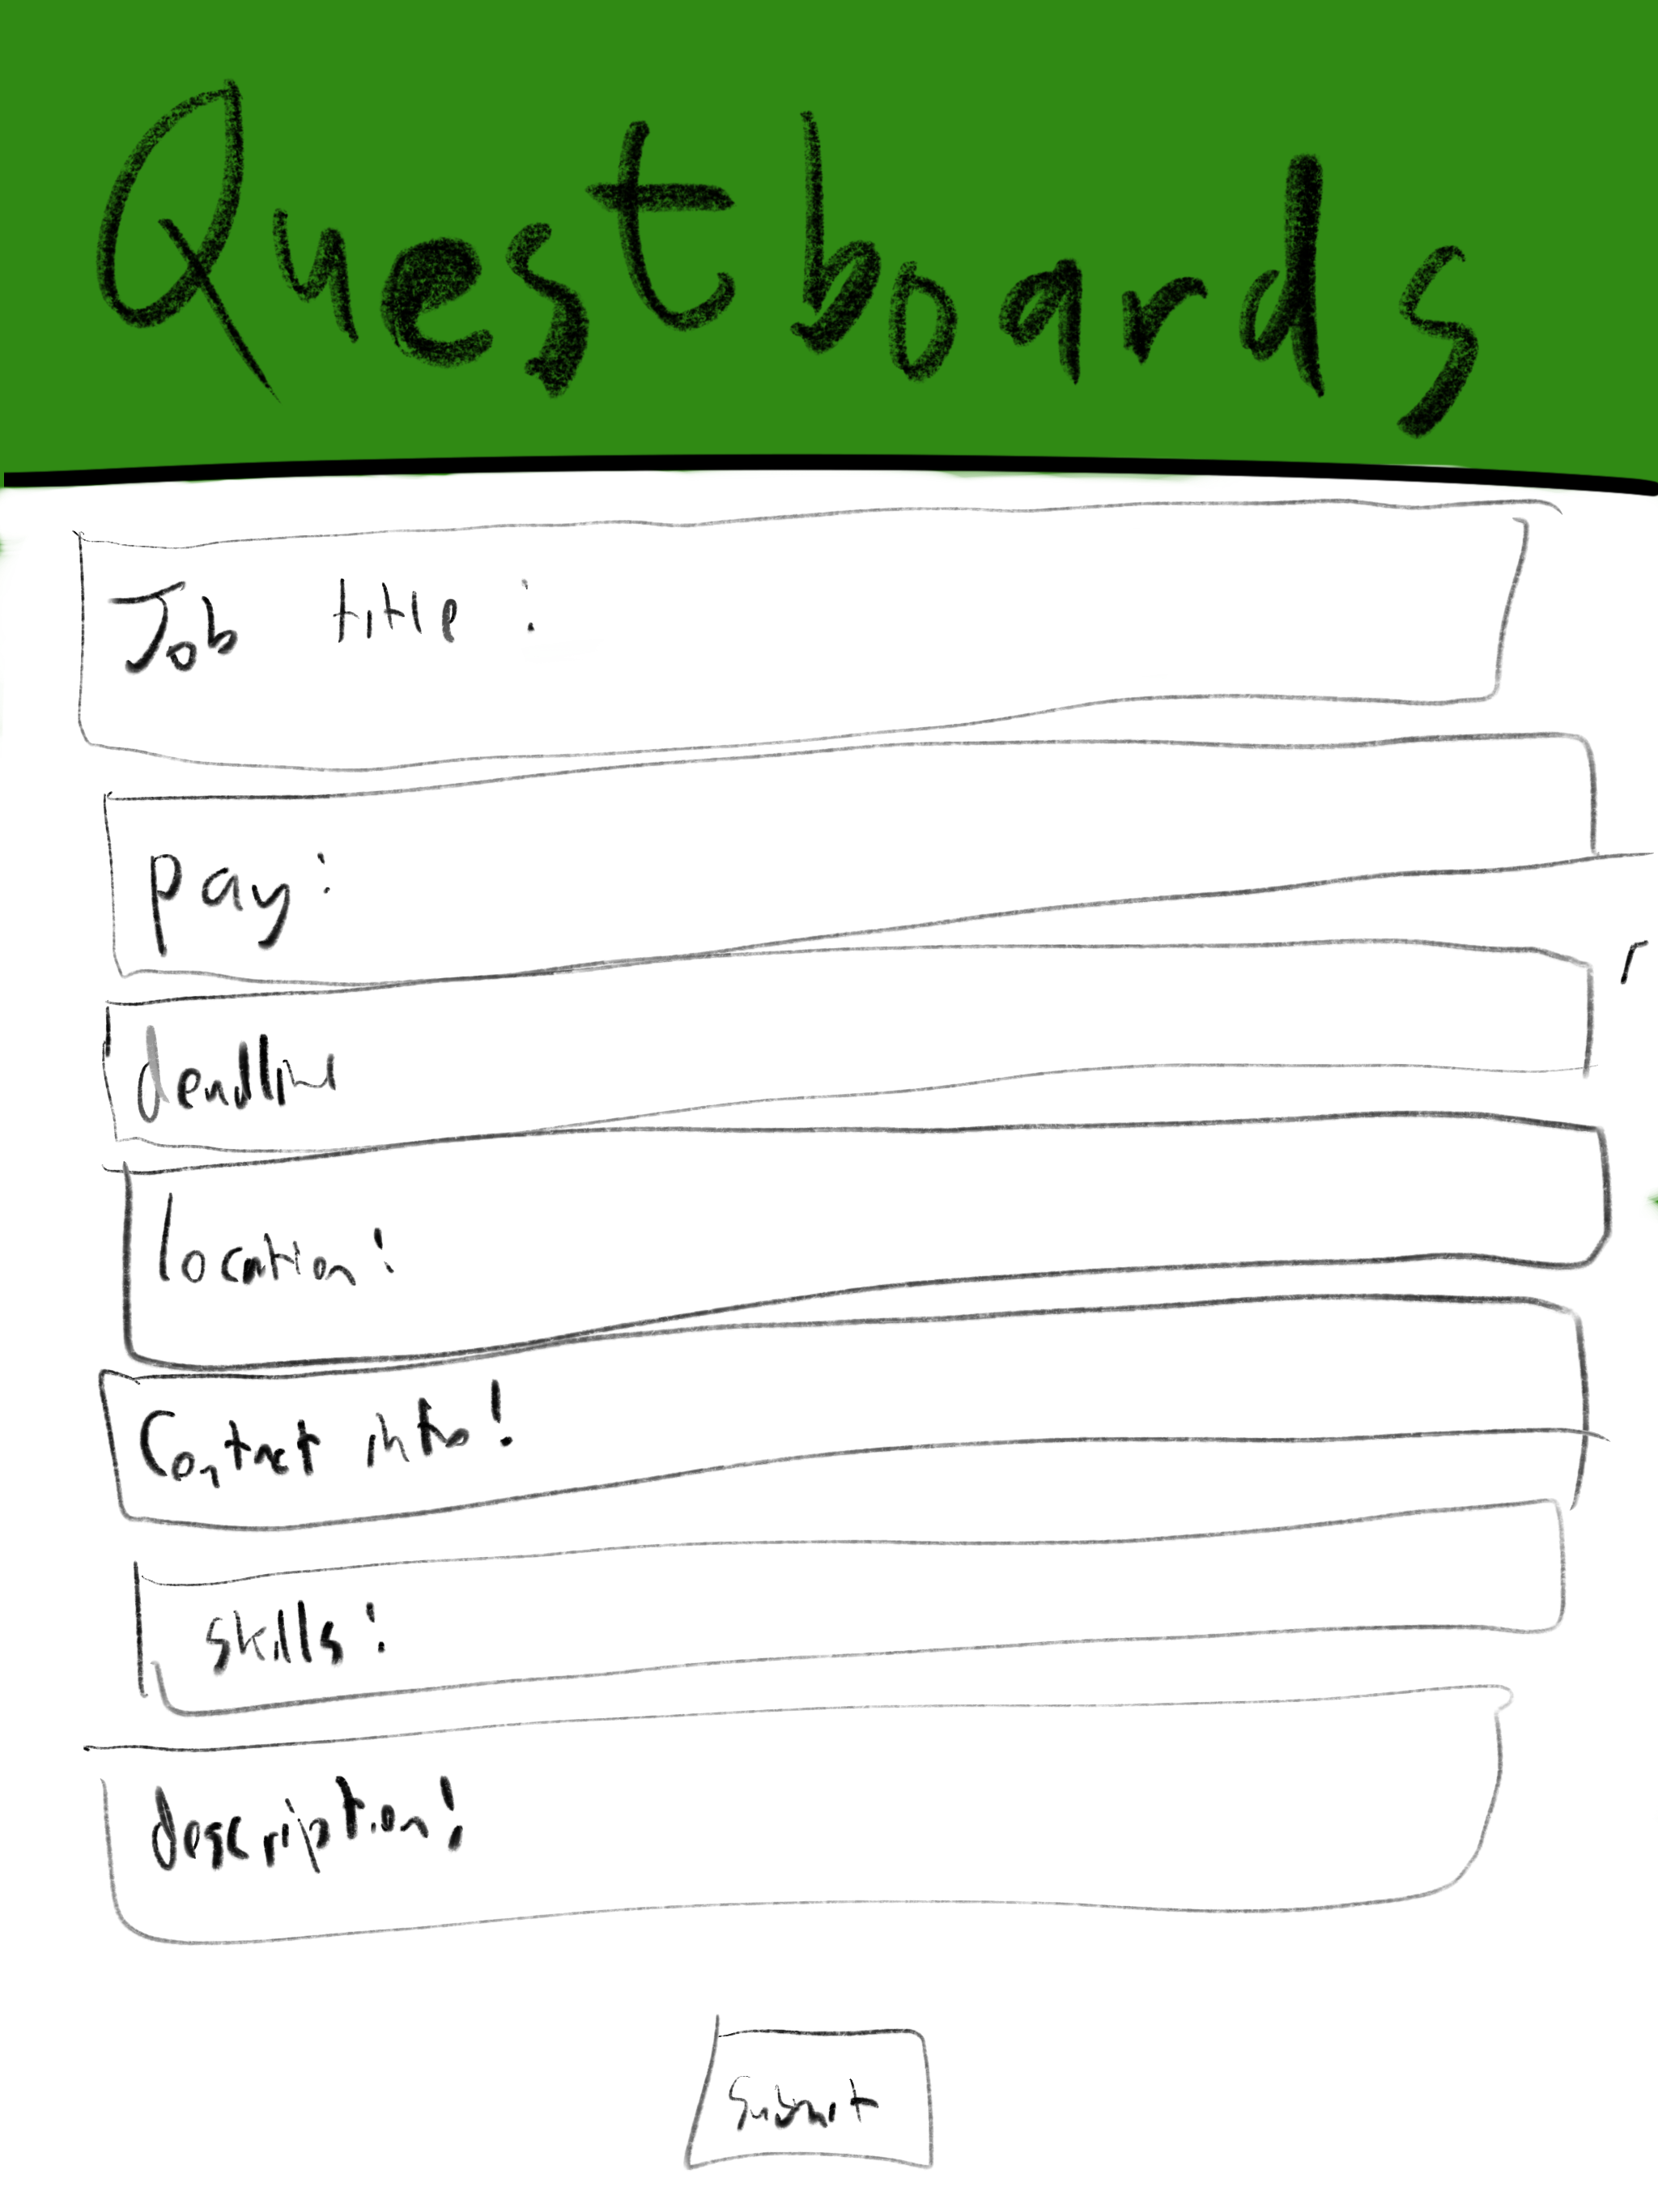 Questboards
Job title :
pay:
deadline
location:
Contact info!
skills:
description!
Submit